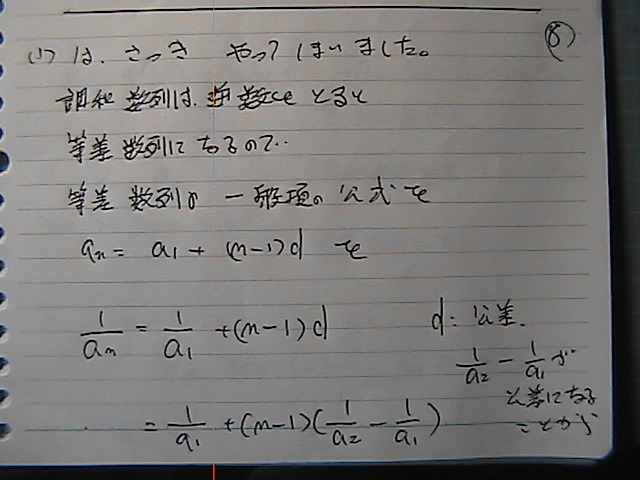 ⑧
(1) は、さっき やってしまいました。
調和数列は、逆数をとると
等差数列になるので‥
等差数列の 一般項の 公式を
aₙ = a₁ + (n-1)d を
1/aₙ = 1/a₁ + (n-1)d
d: 公差.
1/a₂ - 1/a₁ が
公差になる
ことから
= 1/a₁ + (n-1)(1/a₂ - 1/a₁)